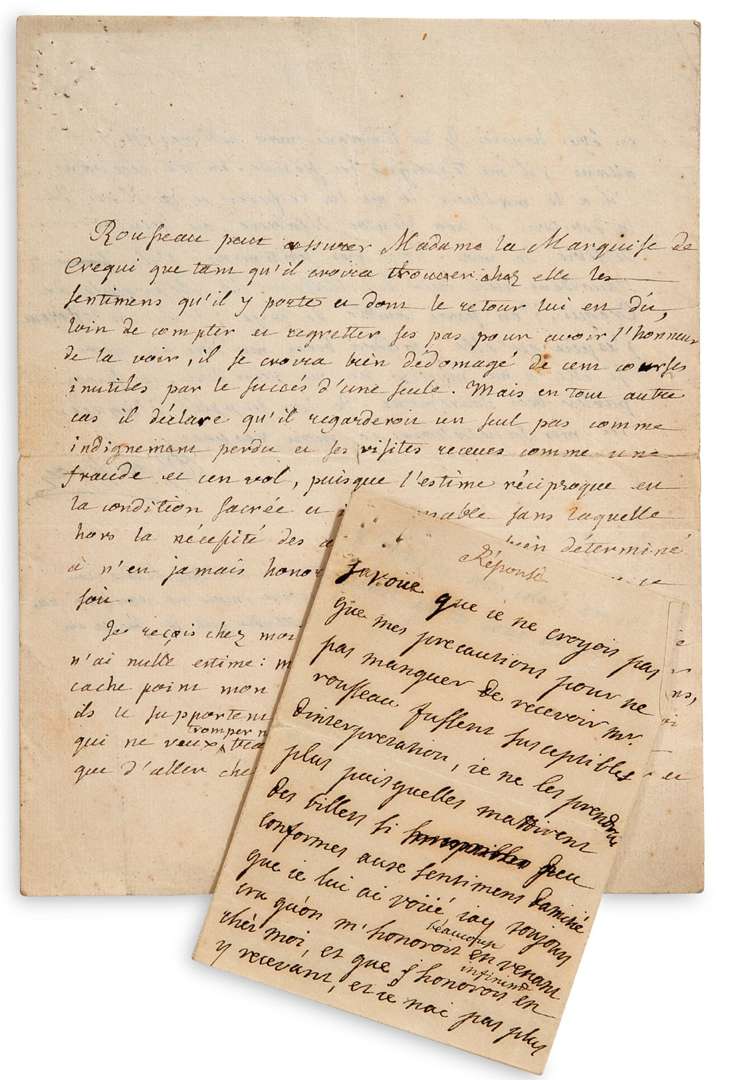 Rousseau peut assurer Madame la Marquise de
Crequi que tant qu'il croira trouver chez elle les
sentimens qu'il y porte et dont le retour lui est du,
loin de compter et regretter ses pas pour avoir l'honneur
de la voir, il se croira bien dédomagé de cent courses
inutiles par le succès d'une seule. Mais en tout autre
cas il déclare qu'il regarderoit un seul pas comme
indignement perdu et ses visites receues comme une
fraude et un vol, puisque l'estime réciproque est
la condition sacrée et sans laquelle
hors la nécessité des bien déterminé
à n'en jamais
soit.
Je reçois chez moi
n'ai nulle estime:
cache point mon
ils le supportent
tromper
qui ne veux
que d'aller
Réponse
Javoüe que ie ne croyois pas
que mes precautions pour ne
pas manquer de recevoir mr.
rousseau fussent susceptibles
dinterpretation, ie ne les prendrai
plus puisquelles mattirent
des billets si peu
conformes ause sentimens damitié
que ie lui ai voüé iay toujours
cru qu'on m'honoroit beaucoup en venant
chés moi, et que j'honorois infiniment en
y recevant, et ie nai pas plus